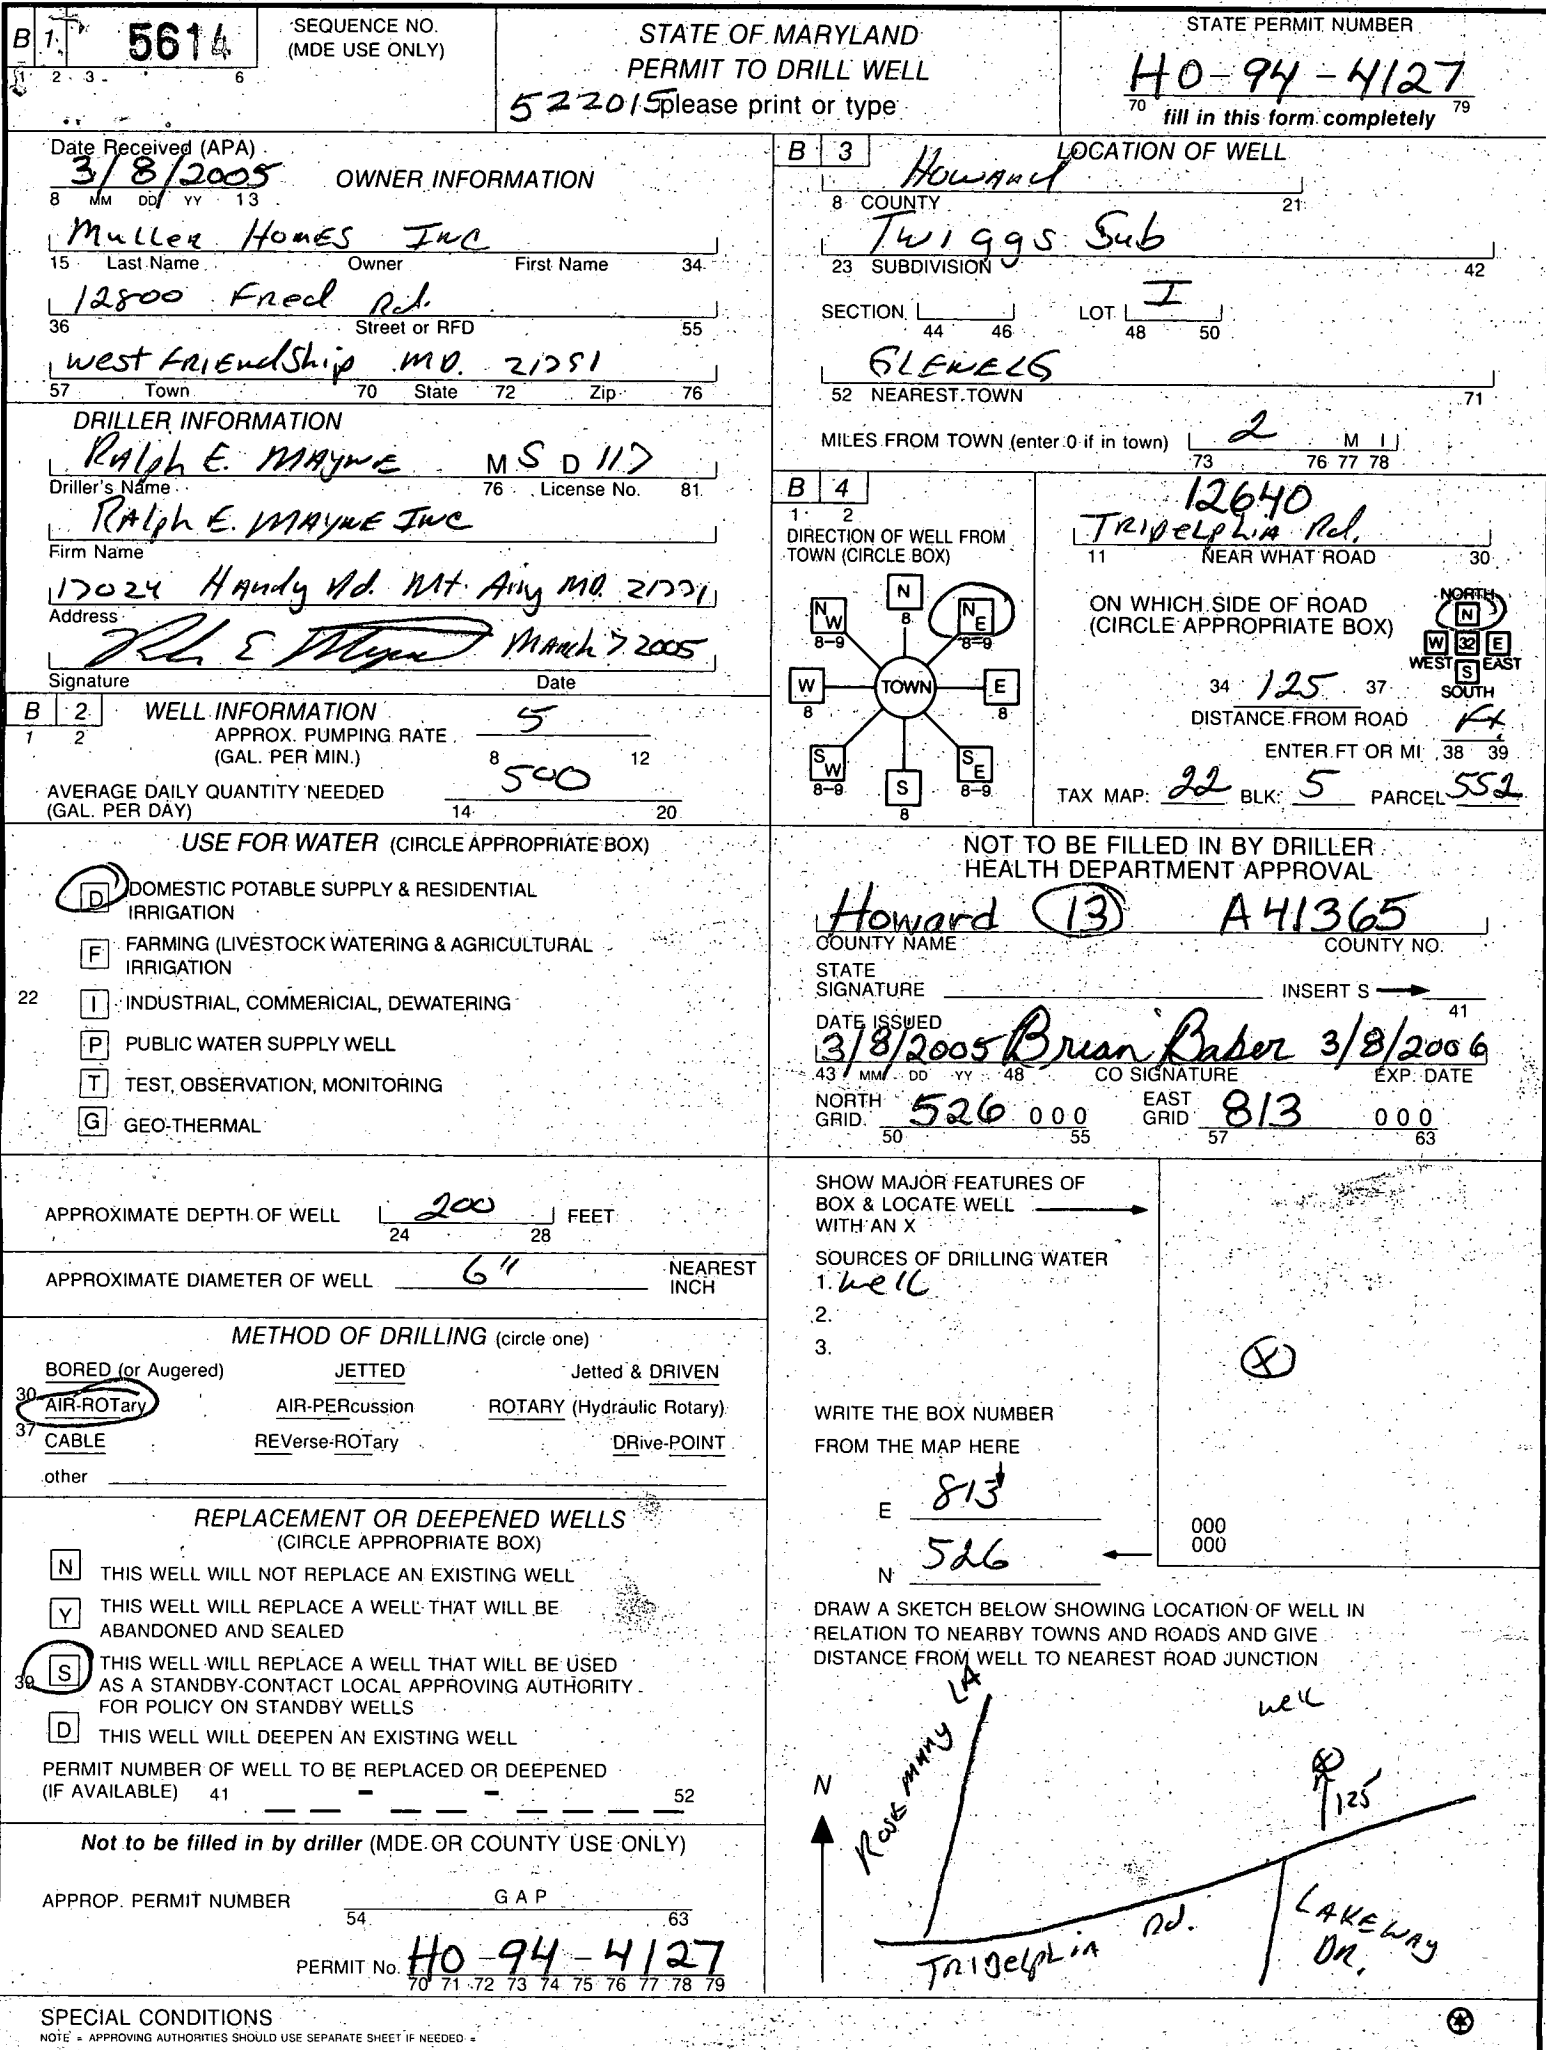 B 1 5614 SEQUENCE NO. (MDE USE ONLY)
1 2 3 6
STATE OF MARYLAND
PERMIT TO DRILL WELL
522015 please print or type
STATE PERMIT NUMBER
HO-94-4127
70 79
fill in this form completely
Date Received (APA)
3/8/2005
8 MM DD YY 13
OWNER INFORMATION
Muller Homes Inc
15 Last Name Owner First Name 34
12800 Fred Rd.
36 Street or RFD 55
West Friendship MD.
57 Town 70 State 72 Zip 76
DRILLER INFORMATION
Ralph E. Mayne M S D 117
Driller's Name 76 License No. 81
Ralph E. Mayne Inc
Firm Name
17024 Handy Rd. Mt. Airy MD. 21771
Address
March 7 2005
Signature Date
B 2 WELL INFORMATION
1 2
APPROX. PUMPING RATE 5
(GAL. PER MIN.) 8 12
AVERAGE DAILY QUANTITY NEEDED 500
(GAL. PER DAY) 14 20
USE FOR WATER (CIRCLE APPROPRIATE BOX)
D DOMESTIC POTABLE SUPPLY & RESIDENTIAL
IRRIGATION
F FARMING (LIVESTOCK WATERING & AGRICULTURAL
IRRIGATION
22 I INDUSTRIAL, COMMERICIAL, DEWATERING
P PUBLIC WATER SUPPLY WELL
T TEST, OBSERVATION, MONITORING
G GEO-THERMAL
APPROXIMATE DEPTH OF WELL 200 FEET
24 28
APPROXIMATE DIAMETER OF WELL 6" NEAREST
INCH
METHOD OF DRILLING (circle one)
BORED (or Augered) JETTED Jetted & DRIVEN
30 AIR-ROTary AIR-PERcussion ROTARY (Hydraulic Rotary)
37 CABLE REVerse-ROTary DRive-POINT
other
REPLACEMENT OR DEEPENED WELLS
(CIRCLE APPROPRIATE BOX)
N THIS WELL WILL NOT REPLACE AN EXISTING WELL
Y THIS WELL WILL REPLACE A WELL THAT WILL BE
ABANDONED AND SEALED
39 S THIS WELL WILL REPLACE A WELL THAT WILL BE USED
AS A STANDBY-CONTACT LOCAL APPROVING AUTHORITY
FOR POLICY ON STANDBY WELLS
D THIS WELL WILL DEEPEN AN EXISTING WELL
PERMIT NUMBER OF WELL TO BE REPLACED OR DEEPENED
(IF AVAILABLE) 41 - - 52
Not to be filled in by driller (MDE OR COUNTY USE ONLY)
APPROP. PERMIT NUMBER G A P
54 63
PERMIT No. HO-94-4127
70 71 72 73 74 75 76 77 78 79
SPECIAL CONDITIONS
NOTE = APPROVING AUTHORITIES SHOULD USE SEPARATE SHEET IF NEEDED =
B 3 LOCATION OF WELL
Howard
8 COUNTY 21
Twiggs Sub
23 SUBDIVISION 42
SECTION LOT I
44 46 48 50
GLENELG
52 NEAREST TOWN 71
MILES FROM TOWN (enter 0 if in town) 2 M I
73 76 77 78
B 4
1 2
DIRECTION OF WELL FROM
TOWN (CIRCLE BOX)
N 8
NW 8-9 NE 8-9
W 8 TOWN E 8
SW 8-9 SE 8-9
S 8
12640
Tridelphia Rd.
11 NEAR WHAT ROAD 30
ON WHICH SIDE OF ROAD
(CIRCLE APPROPRIATE BOX)
NORTH
N
W 32 E
WEST S EAST
SOUTH
34 125 37
DISTANCE FROM ROAD Ft.
ENTER FT OR MI 38 39
TAX MAP: 22 BLK: 5 PARCEL 552
NOT TO BE FILLED IN BY DRILLER
HEALTH DEPARTMENT APPROVAL
Howard 13 A41365
COUNTY NAME COUNTY NO.
STATE
SIGNATURE INSERT S
41
DATE ISSUED
3/8/2005 Brian Baber 3/8/2006
43 MM DD YY 48 CO SIGNATURE EXP. DATE
NORTH GRID 526 000 EAST GRID 813 000
50 55 57 63
SHOW MAJOR FEATURES OF
BOX & LOCATE WELL
WITH AN X
SOURCES OF DRILLING WATER
1. well
2.
3.
X
WRITE THE BOX NUMBER
FROM THE MAP HERE
E 813
N 526
000
000
DRAW A SKETCH BELOW SHOWING LOCATION OF WELL IN
RELATION TO NEARBY TOWNS AND ROADS AND GIVE
DISTANCE FROM WELL TO NEAREST ROAD JUNCTION
Rosemary LA
well
N
125'
Tridelphia Rd.
LAKEWAY
DR.